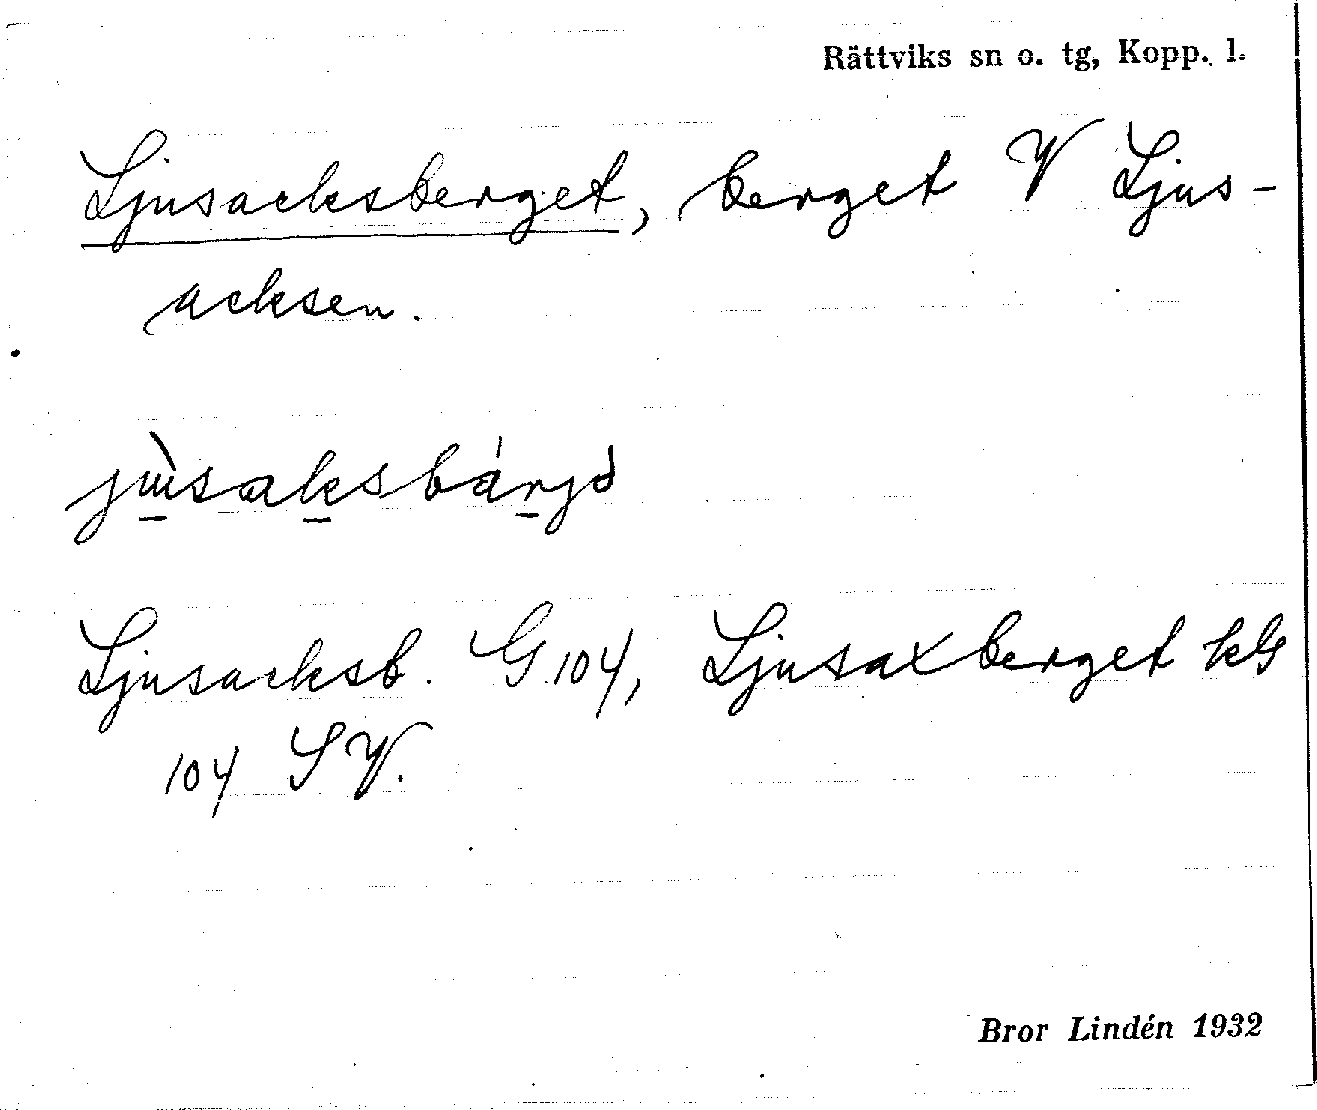 Rättviks sn o. tg, Kopp. l.
Ljusacksberget, berget V Ljus-
acksen.
Ljusacksb. G 104, Ljusaxberget kG
104 SV.
Bror Lindén 1932